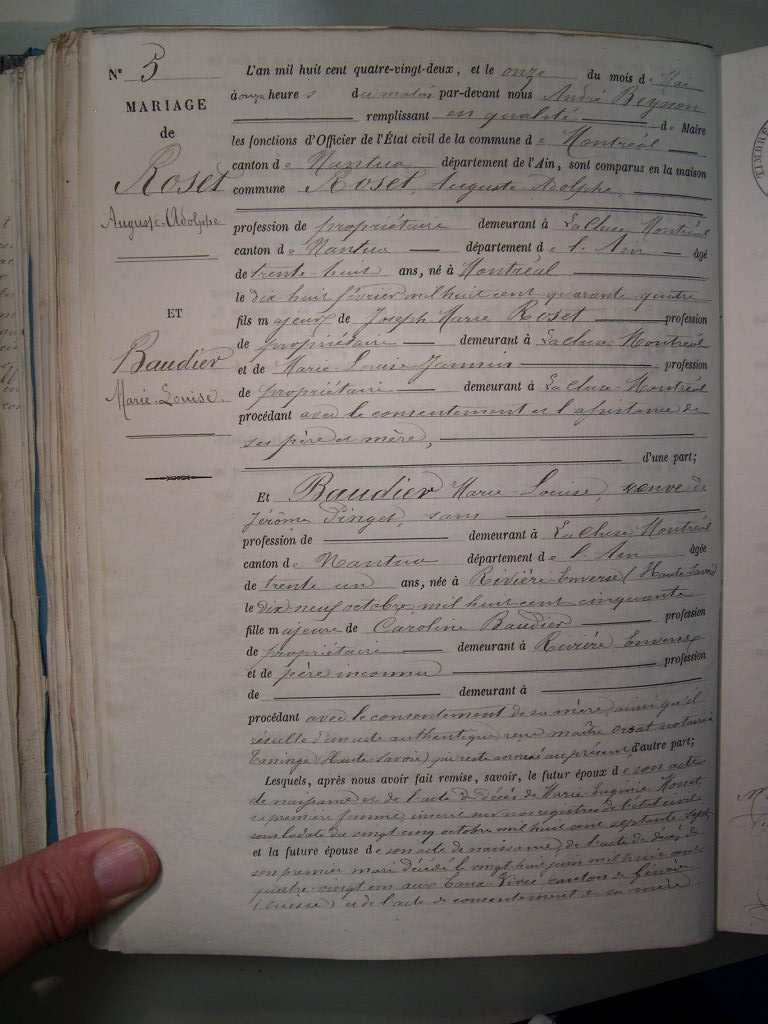 N° 3
MARIAGE
de
Roset
Auguste Adolphe
ET
Baudier
Marie Louise.
L'an mil huit cent quatre-vingt-deux, et le onze du mois de Mai
à onze heures du matin par-devant nous André Reynon
remplissant en qualité de Maire
les fonctions d'Officier de l'État civil de la commune de Montréal
canton de Nantua département de l'Ain, sont comparus en la maison
commune Roset, Auguste Adolphe,
profession de propriétaire demeurant à La Cluse Montréal
canton de Nantua département de l'Ain âgé
de trente-huit ans, né à Montréal
le dix huit février mil huit cent quarante quatre
fils majeur de Joseph Marie Roset profession
de propriétaire demeurant à La Cluse Montréal
et de Marie Louise Jannin profession
de propriétaire demeurant à La Cluse Montréal
procédant avec le consentement et l'assistance de
ses père et mère,
d'une part;
Et Baudier Marie Louise, veuve de
Jérôme Pinget, sans
profession de demeurant à La Cluse Montréal
canton de Nantua département de l'Ain âgée
de trente un ans, née à Rivière Enverse (Haute Savoie)
le dix neuf octobre mil huit cent cinquante
fille majeure de Caroline Baudier profession
de propriétaire demeurant à Rivière Enverse
et de père inconnu profession
de demeurant à
procédant avec le consentement de sa mère, ainsi qu'il
résulte d'un acte authentique reçu maître notaire
Taninge (Haute Savoie) qui reste annexé au présent d'autre part;
Lesquels, après nous avoir fait remise, savoir, le futur époux de son acte
de naissance et de l'acte de décès de Marie Eugénie
sa première femme, inscrit sur nos registres de l'état civil
sous la date du vingt cinq octobre mil huit cent septante sept
et la future épouse de son acte de naissance, de l'acte de décès de
son premier mari décédé le vingt huit juin mil huit cent
quatre-vingt un aux Eaux Vives canton de Genève
(Suisse) et de l'acte de consentement de sa mère
TIMBRE